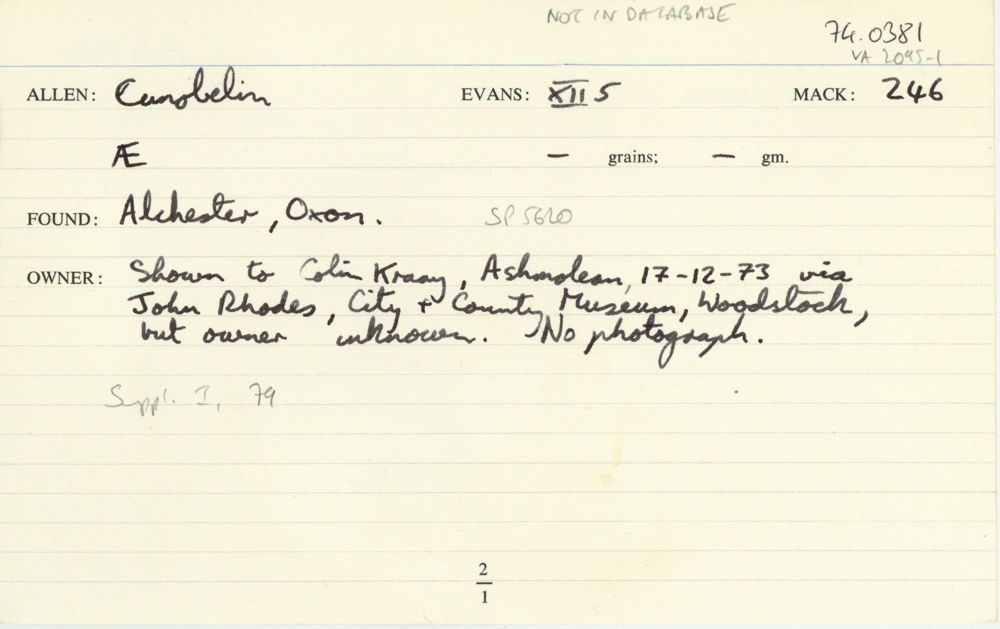 NOT IN DATABASE
74.0381
VA 2095-1
ALLEN: Cunobelin EVANS: XII 5 MACK: 246
Æ — grains; — gm.
FOUND: Alchester, Oxon. SP 5620
OWNER: Shown to Colin Kraay, Ashmolean, 17-12-73 via
John Rhodes, City + County Museum, Woodstock,
but owner unknown. No photograph.
Suppl. I, 79
2
1